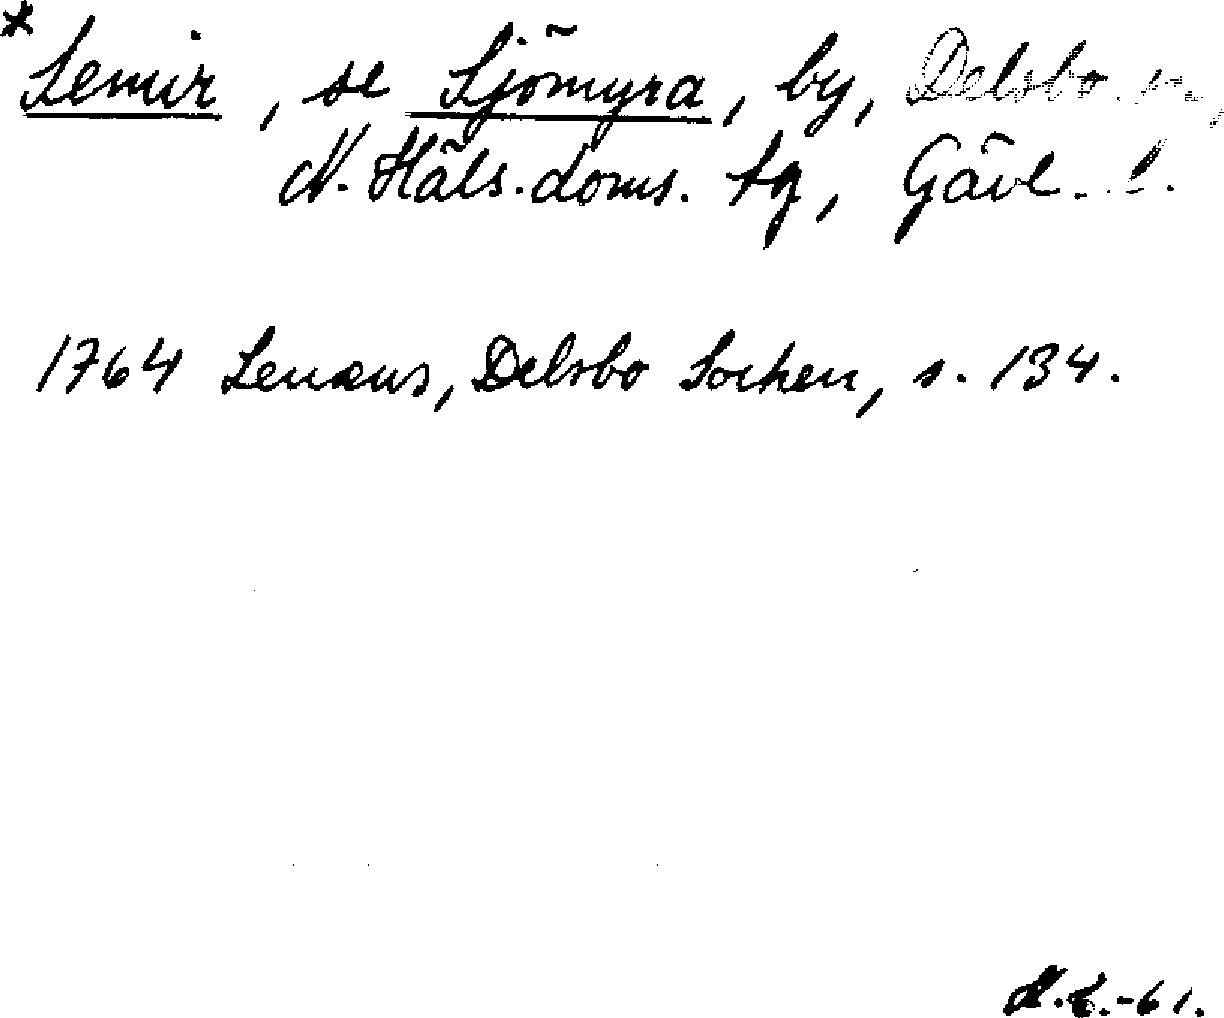 * Semir, se Sjömyra, by, Delsbo sn,
N. Häls. doms. tg, Gävl. l.
1764 Lenæus, Delsbo Socken, s. 134.
-61.